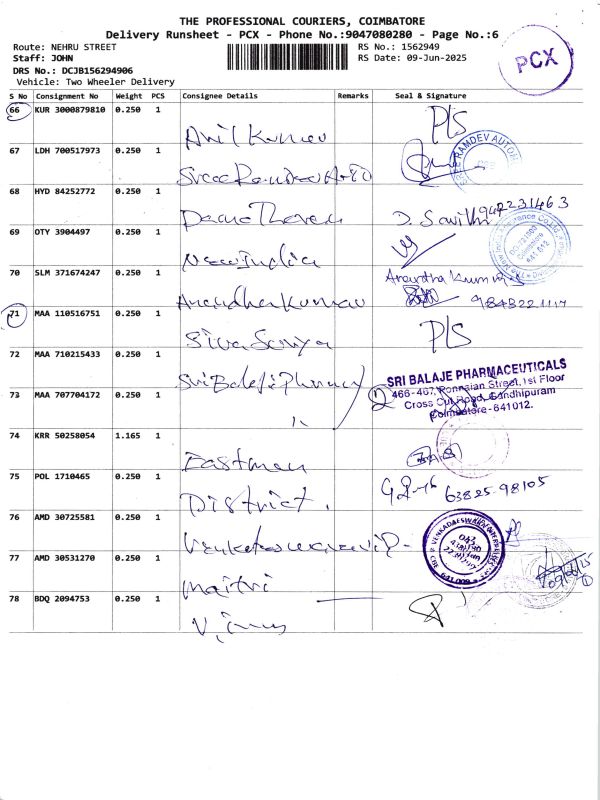 THE PROFESSIONAL COURIERS, COIMBATORE
Delivery Runsheet - PCX - Phone No.:9047080280 - Page No.:6
Route: NEHRU STREET
RS No.: 1562949
Staff: JOHN
RS Date: 09-Jun-2025
DRS No.: DCJB156294906
Vehicle: Two Wheeler Delivery
PCX
S No Consignment No Weight PCS Consignee Details Remarks Seal & Signature
66 KUR 3000879810 0.250 1
Anil Kumar
67 LDH 700517973 0.250 1
RAMDEV AUTO
68 HYD 84252772 0.250 1
69 OTY 3904497 0.250 1
New India
70 SLM 371674247 0.250 1
Anandha Kumar
71 MAA 110516751 0.250 1
Siva Sanya
72 MAA 710215433 0.250 1
Sri Balaje Pharmacy
SRI BALAJE PHARMACEUTICALS
466-467, Ponnaian Street, 1st Floor
Cross Cut Road, Gandhipuram
Coimbatore - 641012.
73 MAA 707704172 0.250 1
74 KRR 50258054 1.165 1
Eastman
75 POL 1710465 0.250 1
District.
63825 98105
76 AMD 30725581 0.250 1
77 AMD 30531270 0.250 1
Maitri
78 BDQ 2094753 0.250 1